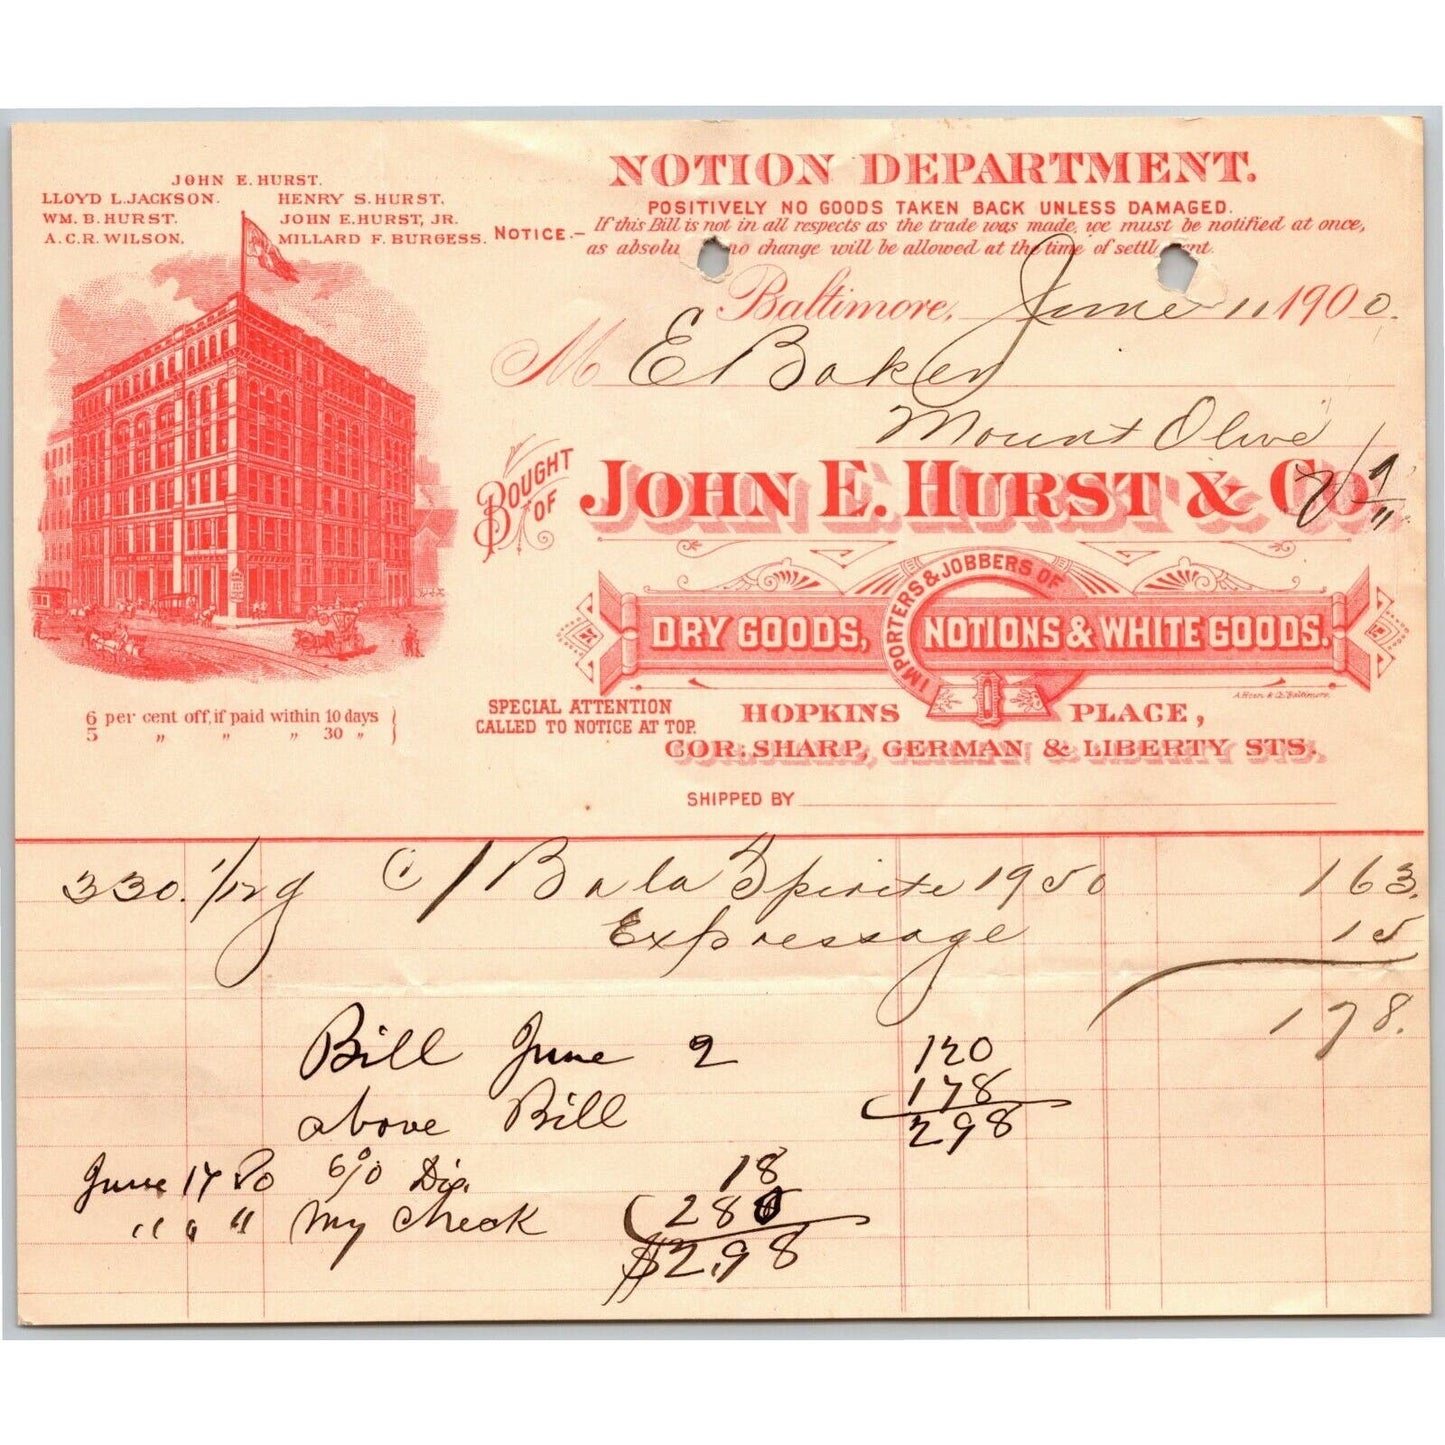 JOHN E. HURST.
LLOYD L. JACKSON. HENRY S. HURST.
WM. B. HURST. JOHN E. HURST, JR.
A. C. R. WILSON. MILLARD F. BURGESS.
NOTION DEPARTMENT.
POSITIVELY NO GOODS TAKEN BACK UNLESS DAMAGED.
NOTICE.- If this Bill is not in all respects as the trade was made, we must be notified at once,
as absolu no change will be allowed at the time of settl nt.
Baltimore, June 11 1900.
M E Baker
Mount Olive
BOUGHT OF JOHN E. HURST & CO.
IMPORTERS & JOBBERS OF
DRY GOODS, NOTIONS & WHITE GOODS.
A. Hoen & Co. Baltimore.
SPECIAL ATTENTION
CALLED TO NOTICE AT TOP.
HOPKINS PLACE,
COR. SHARP, GERMAN & LIBERTY STS.
6 per cent off, if paid within 10 days
5 " " " 30 "
SHIPPED BY
330. 1/12 g 1 1950 163.
Expressage 15
178.
Bill June 2 120
above Bill 178
298
June 14 00 6% Dis. 18
" " " My Check 280
$2.98